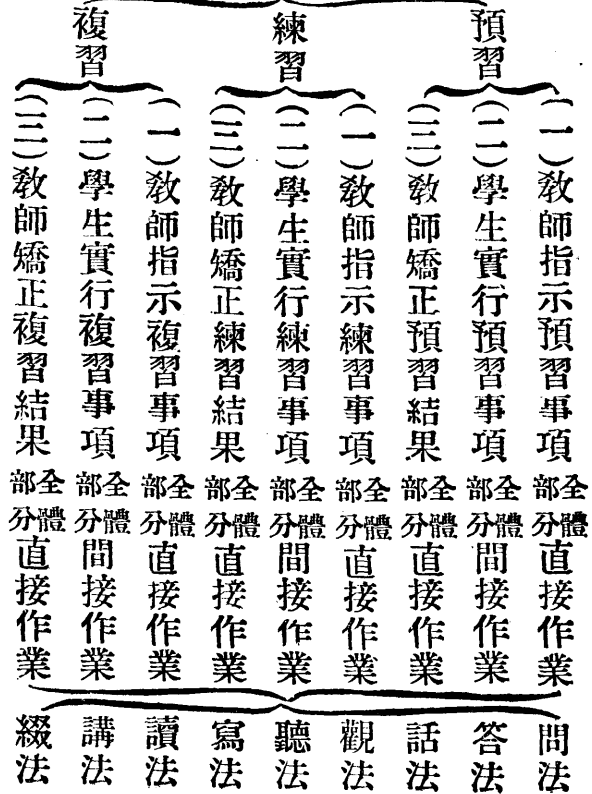 預習
(一)教師指示預習事項全體部分直接作業
(二)學生實行預習事項全體部分間接作業
(三)教師矯正預習結果全體部分直接作業
練習
(一)教師指示練習事項全體部分直接作業
(二)學生實行練習事項全體部分間接作業
(三)教師矯正練習結果全體部分直接作業
複習
(一)教師指示複習事項全體部分直接作業
(二)學生實行複習事項全體部分間接作業
(三)教師矯正複習結果全體部分直接作業
問法
答法
話法
觀法
聽法
寫法
讀法
講法
綴法